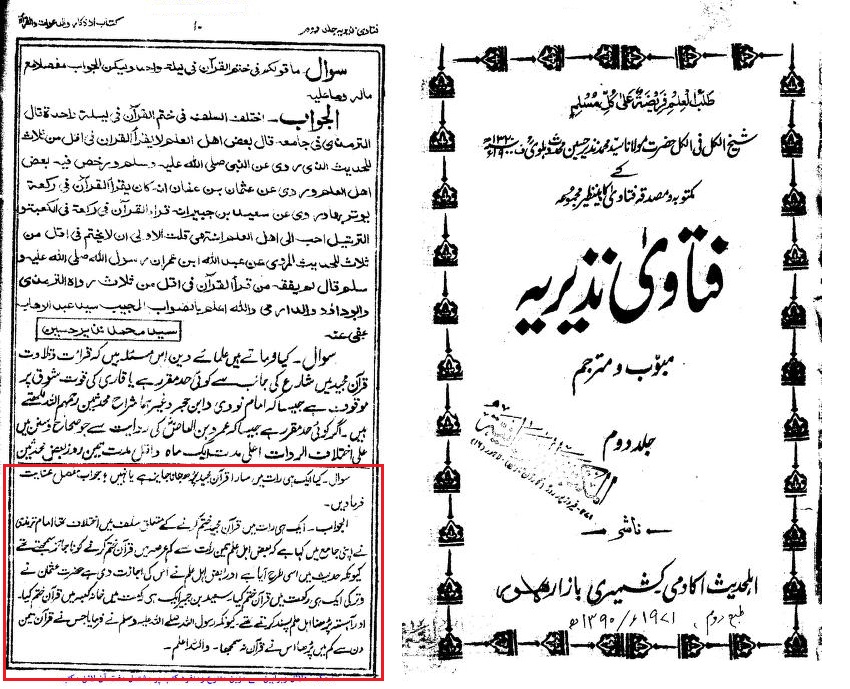 فتاویٰ نذیریہ جلد دوم
۱۰
کتاب الاذکار والدعوات والقراۃ
سوال۔ ما قولکم فی ختم القرآن فی لیلۃ واحدۃ بینوا الجواب مفصلا مع
مالہ وما علیہ
الجواب۔ اختلف السلف فی ختم القرآن فی لیلۃ واحدۃ قال
الترمذی فی جامعہ قال بعض اھل العلم لا یقرأ القرآن فی اقل من ثلاث
للحدیث الذی روی عن النبی صلی اللہ علیہ وسلم ورخص فیہ بعض
اھل العلم وروی عن عثمان بن عفان انہ کان یقرأ القرآن فی رکعۃ
یوتر بھا وروی عن سعید بن جبیر انہ قرأ القرآن فی رکعۃ فی الکعبۃ و
الترتیل احب الی اھل العلم انتھی قلت الاولی ان لا یختم فی اقل من
ثلاث للحدیث المروی عن عبد اللہ ابن عمر ان رسول اللہ صلی اللہ علیہ و
سلم قال لم یفقہ من قرأ القرآن فی اقل من ثلاث رواہ الترمذی
وابوداؤد والدارمی واللہ اعلم بالصواب المجیب سید عبد الوھاب
عفی عنہ
سید محمد نذیر حسین
سوال۔ کیا فرماتے ہیں علمائے دین اس مسئلہ میں کہ قرأت و تلاوت
قرآن مجید میں شارع کی جانب سے کوئی حد مقرر ہے یا قاری کی قوت شوق پر
موقوف ہے جیسا کہ امام نووی وابن حجر وغیرہما شراح محدثین رحمہم اللہ لکھتے
ہیں۔ اگر کوئی حد مقرر ہے جیسا کہ عمرو بن العاص کی روایت سے جو صحاح وسنن میں
علی اختلاف الروات اعلیٰ مدت ایک ماہ واقل مدت تین روز بعض محدثین
سوال۔ کیا ایک ہی رات میں سارا قرآن مجید پڑھ جانا جائز ہے یا نہیں؟ جواب مفصل عنایت
فرما دیں۔
الجواب۔ ایک ہی رات میں قرآن مجید ختم کرنے کے متعلق سلف میں اختلاف تھا امام ترمذی
نے اپنی جامع میں کہا ہے کہ بعض اہل علم تین رات سے کم عرصہ میں قرآن ختم کرنے کو ناجائز سمجھتے تھے
کیونکہ حدیث میں اسی طرح آیا ہے اور بعض اہل علم نے اس کی اجازت دی ہے حضرت عثمان نے
وتر کی ایک ہی رکعت میں قرآن ختم کیا۔ سعید بن جبیر ایک ہی رکعت میں خانہ کعبہ میں قرآن ختم کیا۔
اور آہستہ پڑھنا اہل علم پسند کرتے تھے۔ کیونکہ رسول اللہ صلے اللہ علیہ وسلم نے فرمایا جس نے قرآن تین
دن سے کم میں پڑھا اس نے قرآن نہ سمجھا۔ واللہ اعلم۔
طلب العلم فریضۃ علیٰ کل مسلم
شیخ الکل فی الکل حضرت مولانا سید محمد نذیر حسین محدث دہلوی ف ۱۳۲۰ھ
کے
مکتوبہ و مصدقہ فتاویٰ کا بے نظیر مجموعہ
فتاویٰ نذیریہ
مبوّب و مترجم
جلد دوم
ناشر
اہلحدیث اکادمی کشمیری بازار لاہور
طبع دوم ۱۹۷۱ء/۱۳۹۰ھ